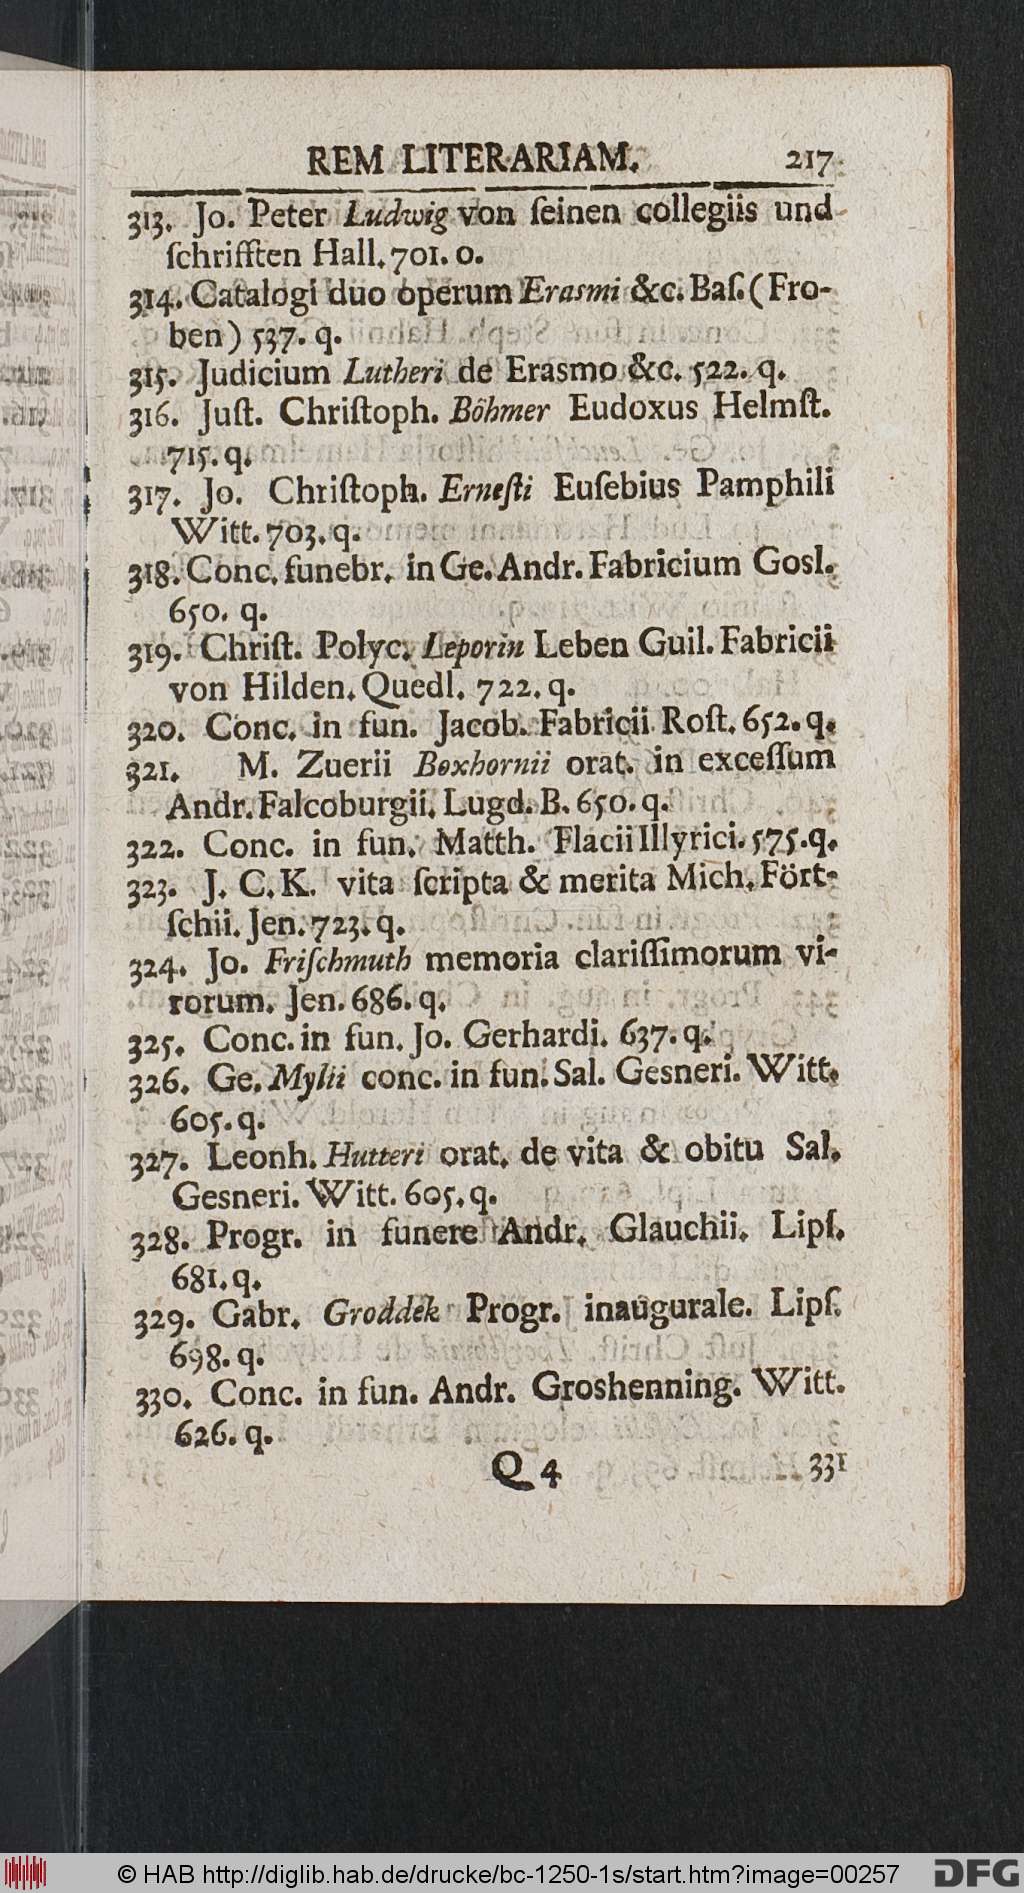 REM LITERARIAM. 217
313. Jo. Peter Ludwig von ſeinen collegiis und
ſchrifften Hall. 701. o.
314. Catalogi duo operum Erasmi &c. Baſ. (Fro-
ben) 537. q.
315. Judicium Lutheri de Erasmo &c. 522. q.
316. Juſt. Chriſtoph. Böhmer Eudoxus Helmſt.
715. q.
317. Jo. Chriſtoph. Erneſti Euſebius Pamphili
Witt. 703. q.
318. Conc. funebr. in Ge. Andr. Fabricium Gosl.
650. q.
319. Chriſt. Polyc. Leporin Leben Guil. Fabricii
von Hilden. Quedl. 722. q.
320. Conc. in fun. Jacob. Fabricii Roſt. 652. q.
321. M. Zuerii Boxhornii orat. in exceſſum
Andr. Falcoburgii. Lugd. B. 650. q.
322. Conc. in fun. Matth. Flacii Illyrici. 575. q.
323. J. C. K. vita ſcripta & merita Mich. Fört-
ſchii. Jen. 723. q.
324. Jo. Friſchmuth memoria clariſſimorum vi-
rorum. Jen. 686. q.
325. Conc. in fun. Jo. Gerhardi. 637. q.
326. Ge. Mylii conc. in fun. Sal. Gesneri. Witt.
605. q.
327. Leonh. Hutteri orat. de vita & obitu Sal.
Gesneri. Witt. 605. q.
328. Progr. in funere Andr. Glauchii. Lipſ.
681. q.
329. Gabr. Groddek Progr. inaugurale. Lipſ.
698. q.
330. Conc. in fun. Andr. Groshenning. Witt.
626. q.
Q 4 331
© HAB http://diglib.hab.de/drucke/bc-1250-1s/start.htm?image=00257 DFG